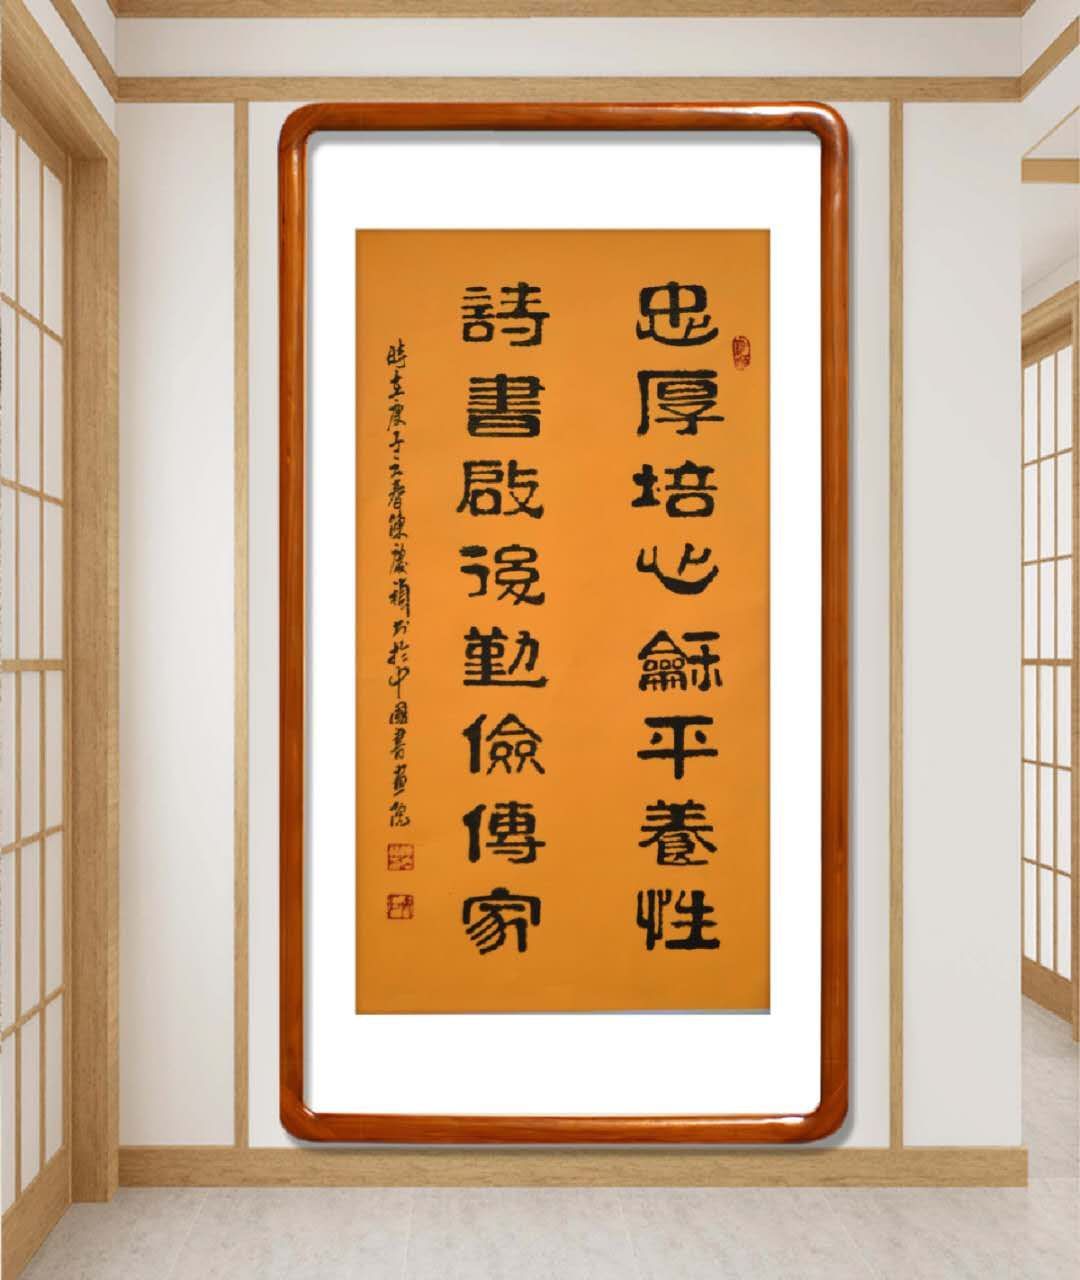 忠厚培心龢平養性
詩書啟後勤儉傳家
時在庚子之春陳慶禎书於中國書畫院